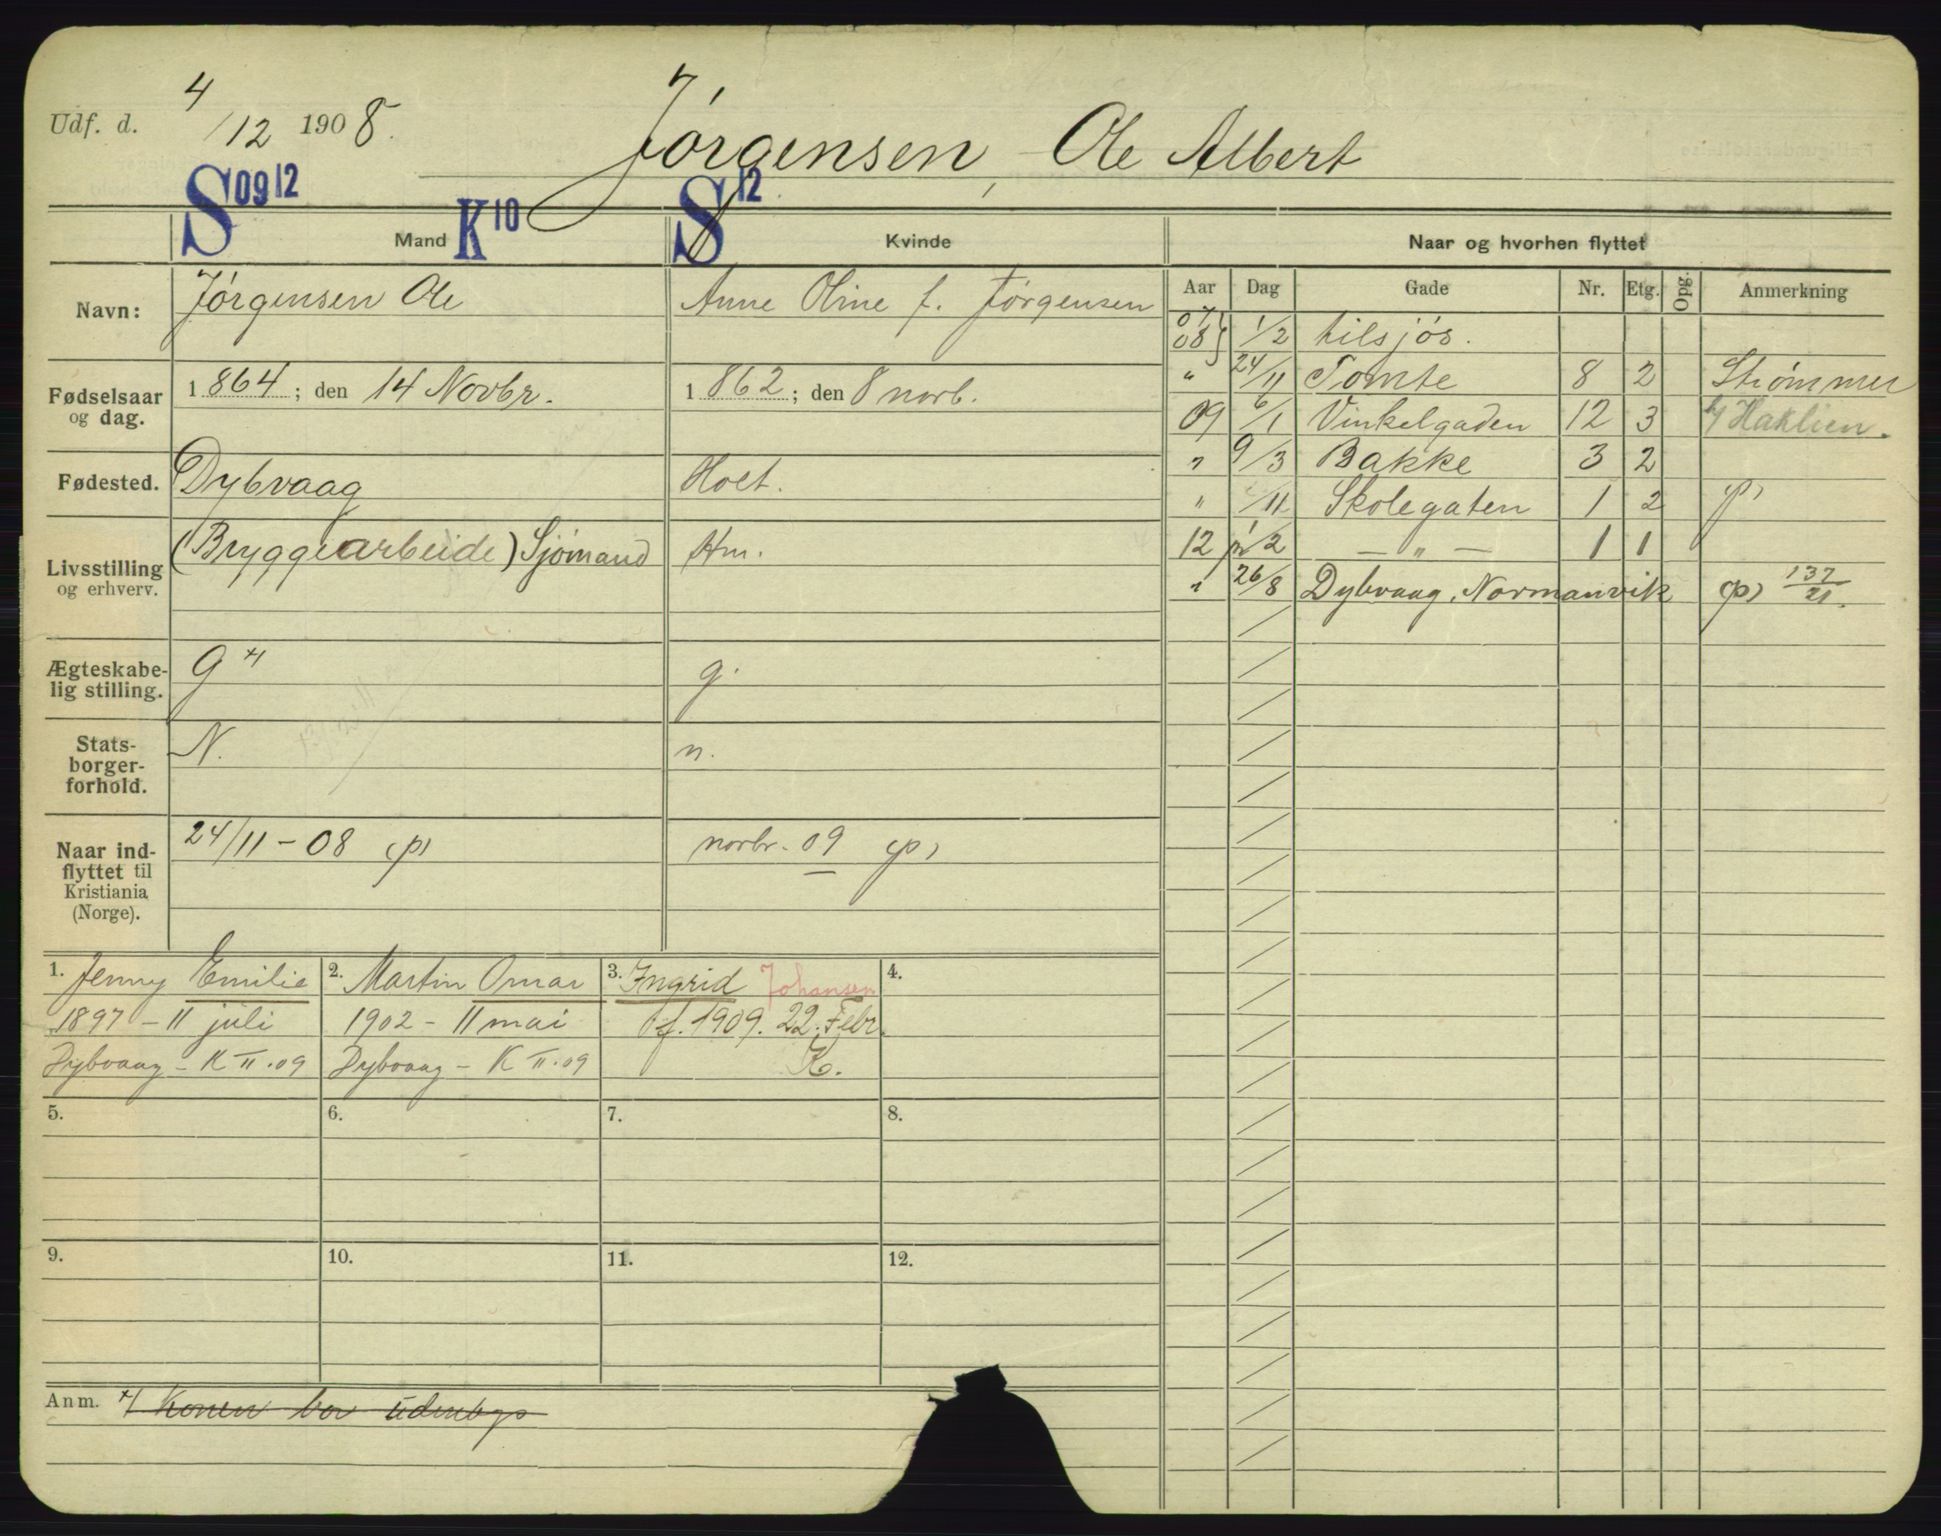 Udf. d. 4/12 1908. Jørgensen, Ole Albert
S 09 12 K 10 S 12
Mand Kvinde Naar og hvorhen flyttet
Navn: Jørgensen Ole Anne Oline f. Jørgensen
Fødselsaar og dag. 1864; den 14 Novbr. 1862; den 8 novb.
Fødested. Dybvaag Holt.
Livsstilling og erhverv. (Bryggearbeide) Sjømand Hm.
Ægteskabelig stilling. G x) g.
Statsborgerforhold. N. n.
Naar indflyttet til Kristiania (Norge). 24/11-08 (p) novbr. 09 (p)
Aar Dag Gade Nr. Etg. Opg. Anmerkning
07 08} 1/2 tilsjøs.
" 24/11 Tomte 8 2 Strømmer
09 6/1 Vinkelgaden 12 3 b/ Haklien.
" 9/3 Bakke 3 2
" /11 Skolegaten 1 2 (p)
12 pr 1/2 — " — 1 1
" 26/8 Dybvaag, Normanvik (p) 137/21.
1. Jenny Emilie
1897 - 11 juli
Dybvaag - K II.09
2. Martin Omar
1902 - 11 mai
Dybvaag - K II.09
3. Ingrid Johansen
f. 1909. 22. Febr.
K.
4.
5. 6. 7. 8.
9. 10. 11. 12.
Anm. x) Konen bor udenbys